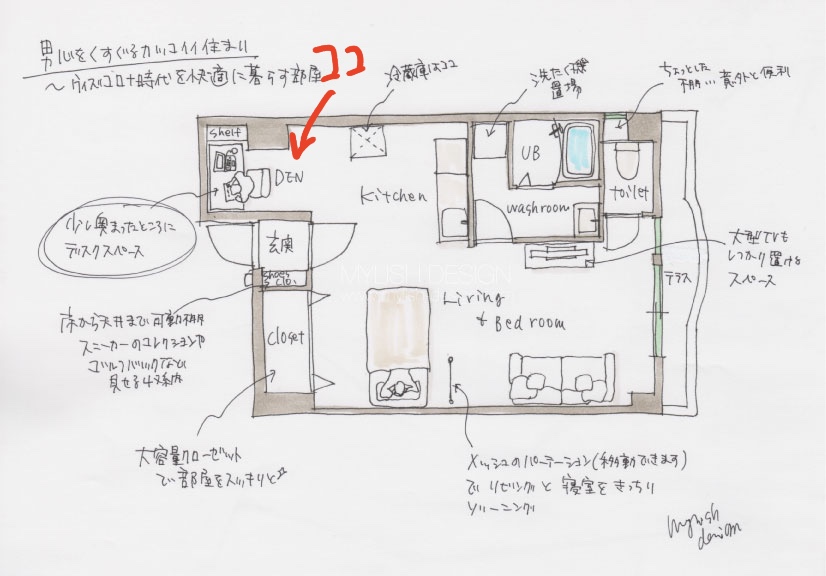 男心をくすぐるカッコイイ住まい
〜ウィズコロナ時代を快適に暮らす部屋
ココ
冷蔵庫はココ
洗たく機
置場
ちょっとした
棚… 意外と便利
shelf
DEN
Kitchen
UB
washroom
toilet
少し奥まったところに
デスクスペース
玄関
shoes
clo.
MYUSH DESIGN
大型TVも
しっかり置ける
スペース
テラス
Living
& Bed room
closet
床から天井まで可動棚
スニーカーのコレクションや
ゴルフバックなど
見せる収納
大容量クローゼット
で部屋をスッキリと☆
メッシュのパーテーション(移動できます)
でリビングと寝室をきっちり
ゾーニング
myush
design